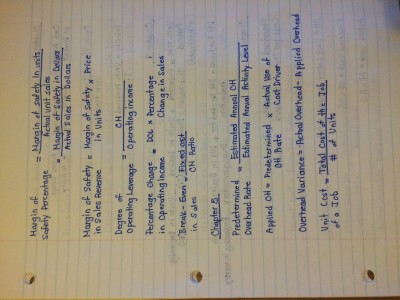 Margin of Safety Percentage = Margin of safety in units / Actual unit sales
= Margin of Safety in Dollars / Actual Sales in Dollars
Margin of Safety in Sales Revenue = Margin of Safety in Units x Price
Degree of Operating Leverage = CM / Operating income
Percentage Change in Operating Income = DOL x Percentage Change in Sales
Break-Even in Sales = Fixed cost / CM Ratio
Chapter 5
Predetermined Overhead Rate = Estimated Annual OH / Estimated Annual Activity Level
Applied OH = Predetermined OH Rate x Actual Use of Cost Driver
Overhead Variance = Actual Overhead - Applied Overhead
Unit Cost of a Job = Total Cost of the Job / # of Units